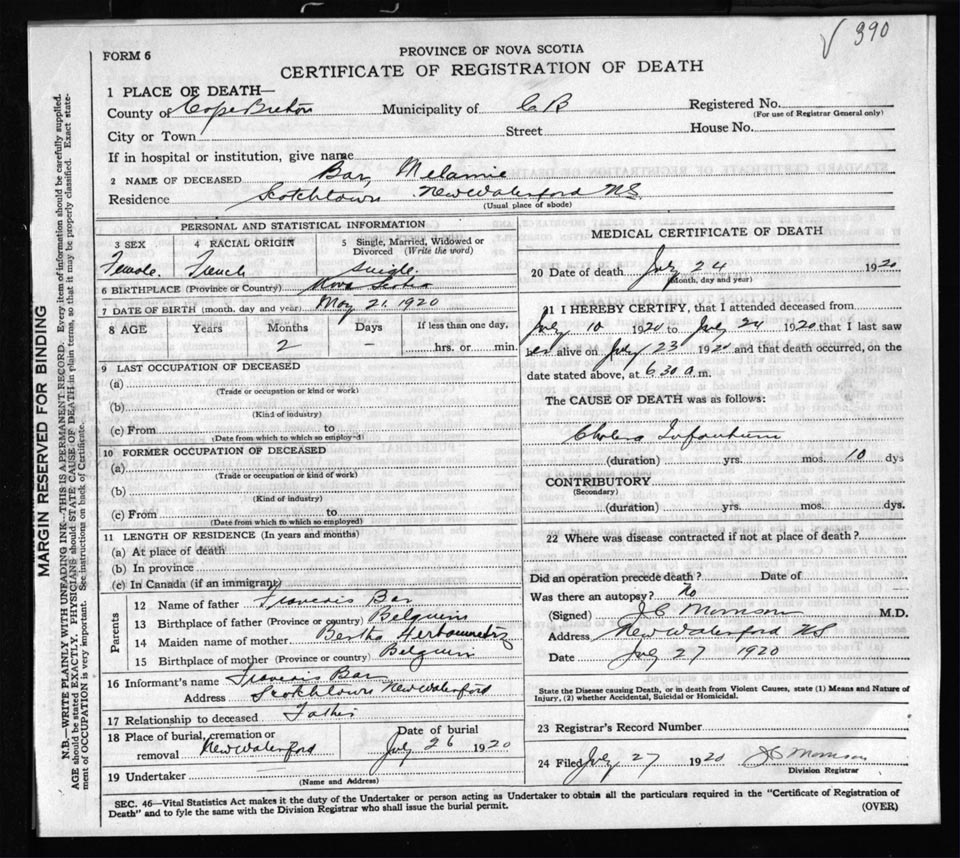 √ 390
FORM 6
PROVINCE OF NOVA SCOTIA
CERTIFICATE OF REGISTRATION OF DEATH
MARGIN RESERVED FOR BINDING
N.B.—WRITE PLAINLY WITH UNFADING INK—THIS IS A PERMANENT RECORD. Every item of information should be carefully supplied.
AGE should be stated EXACTLY. PHYSICIANS should STATE CAUSE OF DEATH in plain terms, so that it may be properly classified. Exact state-
ment of OCCUPATION is very important. See instructions on back of Certificate.
1 PLACE OF DEATH—
County of Cape Breton Municipality of C B Registered No.
(For use of Registrar General only)
City or Town Street House No.
If in hospital or institution, give name
2 NAME OF DECEASED Bar, Melamie
Residence Scotchtown New Waterford N.S.
(Usual place of abode)
PERSONAL AND STATISTICAL INFORMATION
3 SEX 4 RACIAL ORIGIN 5 Single, Married, Widowed or
Divorced (Write the word)
Female. French Single.
6 BIRTHPLACE (Province or Country) Nova Scotia
7 DATE OF BIRTH (month, day and year) May 21, 1920
8 AGE Years Months Days If less than one day,
2 – hrs. or min.
9 LAST OCCUPATION OF DECEASED
(a)
(Trade or occupation or kind or work)
(b)
(Kind of industry)
(c) From to
(Date from which to which so employed)
10 FORMER OCCUPATION OF DECEASED
(a)
(Trade or occupation or kind or work)
(b)
(Kind of industry)
(c) From to
(Date from which to which so employed)
11 LENGTH OF RESIDENCE (In years and months)
(a) At place of death
(b) In province
(c) In Canada (if an immigrant)
Parents
12 Name of father Francois Bar
13 Birthplace of father (Province or country) Belguim
14 Maiden name of mother Bertha
15 Birthplace of mother (Province or country) Belguim
16 Informant's name Francois Bar
Address Scotchtown New Waterford
17 Relationship to deceased Father
18 Place of burial, cremation or Date of burial
removal New Waterford July 26 1920
19 Undertaker
(Name and Address)
MEDICAL CERTIFICATE OF DEATH
20 Date of death July 24 1920
(Month, day and year)
21 I HEREBY CERTIFY, that I attended deceased from
July 10 1920 to July 24 1920 that I last saw
her alive on July 23 1920 and that death occurred, on the
date stated above, at 6 30 a.m.
The CAUSE OF DEATH was as follows:
Cholera Infantum
(duration) yrs. mos. 10 dys
CONTRIBUTORY
(Secondary)
(duration) yrs. mos. dys.
22 Where was disease contracted if not at place of death?
Did an operation precede death? Date of
Was there an autopsy? No
(Signed) J C Morrison M.D.
Address New Waterford N S
Date July 27 1920
State the Disease causing Death, or in death from Violent Causes, state (1) Means and Nature of
Injury, (2) whether Accidental, Suicidal or Homicidal.
23 Registrar's Record Number
24 Filed July 27 1920 J C Morrison
Division Registrar
SEC. 46—Vital Statistics Act makes it the duty of the Undertaker or person acting as Undertaker to obtain all the particulars required in the "Certificate of Registration of
Death" and to fyle the same with the Division Registrar who shall issue the burial permit.
(OVER)